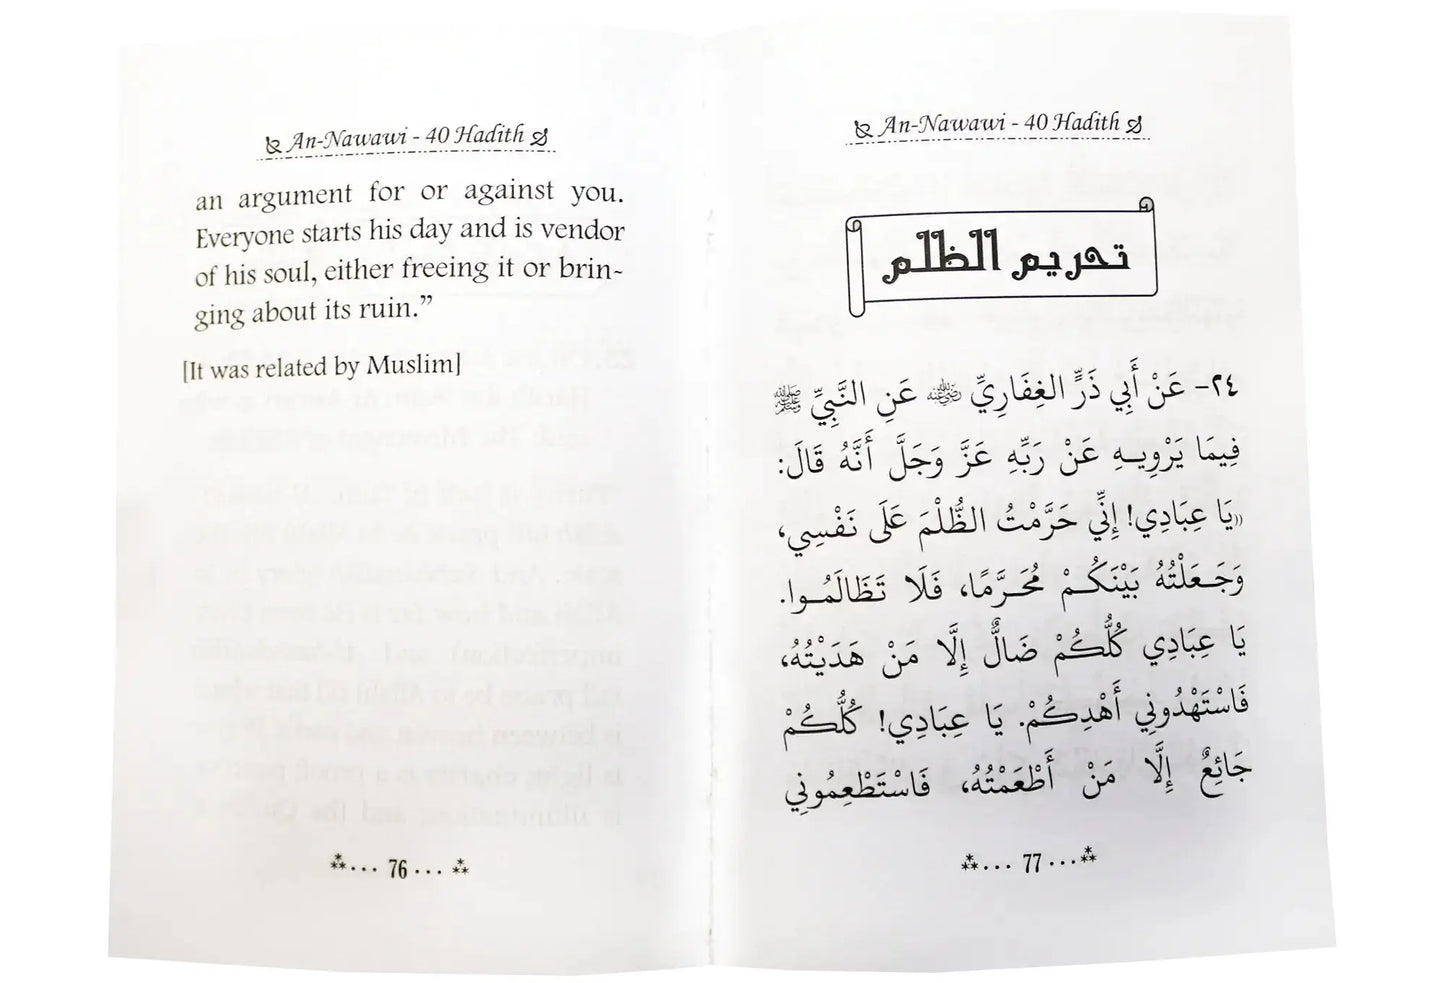 An-Nawawi - 40 Hadith
an argument for or against you.
Everyone starts his day and is vendor
of his soul, either freeing it or brin-
ging about its ruin.”
[It was related by Muslim]
76
An-Nawawi - 40 Hadith
تحريم الظلم
٢٤- عَنْ أَبِي ذَرٍّ الغِفَارِيِّ رضي الله عنه عَنِ النَّبِيِّ ﷺ
فِيمَا يَرْوِيـهِ عَنْ رَبِّهِ عَزَّ وَجَلَّ أَنَّهُ قَالَ:
«يَا عِبَادِي! إِنِّي حَرَّمْتُ الظُّلْمَ عَلَى نَفْسِي،
وَجَـعَلْتُهُ بَيْنَكُـمْ مُحَـرَّمًا، فَلَا تَظَالَمُـوا.
يَا عِبَادِي كُلُّكُمْ ضَالٌّ إِلَّا مَنْ هَدَيْتُهُ،
فَاسْتَهْدُونِي أَهْدِكُمْ. يَا عِبَادِي! كُلُّكُمْ
جَائِعٌ إِلَّا مَنْ أَطْعَمْتُهُ، فَاسْتَطْعِمُونِي
77